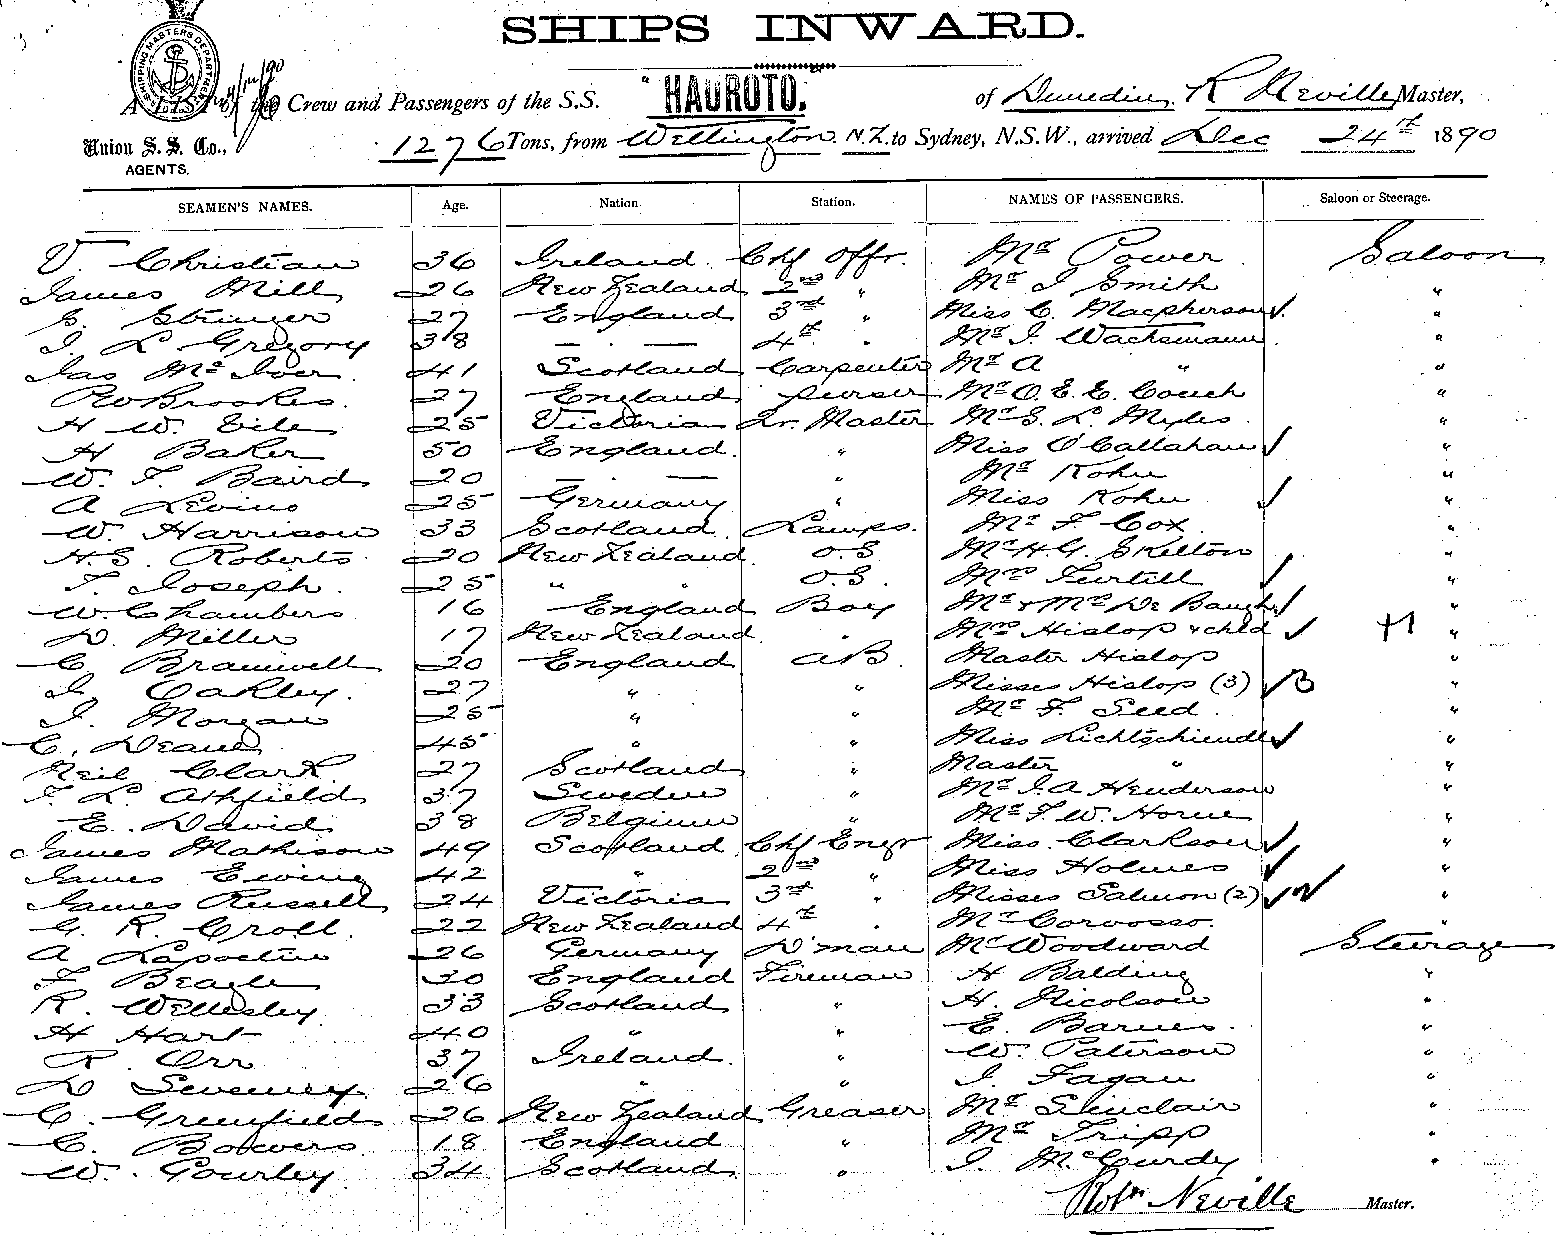 SHIPS INWARD.
SHIPPING MASTERS DEPARTMENT
A LIST of the Crew and Passengers of the S.S. "HAUROTO," of Dunedin, R Neville, Master,
Union S. S. Co.,
AGENTS.
1276 Tons, from Wellington. N.Z. to Sydney, N.S.W., arrived Dec 24th 1890
SEAMEN'S NAMES. Age. Nation. Station. NAMES OF PASSENGERS. Saloon or Steerage.
V. Christian 36 Ireland. Chf Offr. Mr Power Saloon
James Mill 26 New Zealand 2nd " Mr J Smith "
G. Stringer 27 England 3rd " Miss C. Macpherson "
J. L Gregory 38 — . — 4th " Mr J. Wachsmann "
Jas McIver 41 Scotland Carpenter Mr A " "
RW Brookes. 27 England purser Mr O. E. E. Couch "
H W. 25 Victoria Qr. Master Mr S. L. Myles "
H Baker 50 England. " Miss O'Callahan "
W. F. Baird 20 — — " Mr Kohn "
A Levins 25 Germany " Miss Kohn "
W. Harrison 33 Scotland. Lamps. Mr F. Cox "
H.S. Roberts 20 New Zealand. O.S. Mr H.G. Skelton "
T. Joseph. 25 " " O.S. Mrs "
W. Chambers 16 England Boy Mr & Mrs De Baugh "
D. Miller 17 New Zealand. " Mrs Hislop & chld "
C. Bramwell 20 England AB. Master Hislop "
J. Oakley. 27 " " Misses Hislop (3) 3 "
J. Morgan 25 " " Mr F. Seed. "
C. Deane 45 " " Miss "
Neil Clark. 27 Scotland " Master " "
F. L. Athfield 37 Sweden " Mr J.A Henderson "
E. David 38 Belgium " Mr F. W. Horne "
James Mathison 49 Scotland Chf Engr Miss Clarkson "
James Ewing 42 " 2nd " Miss Holmes "
James Russell 24 Victoria 3rd " Misses Salmon (2) "
G. R. Croll. 22 New Zealand 4th " Mr Corvosso. "
A 26 Germany D'man Mr Woodward Steerage
F Beagle 30 England Fireman H Balding "
R. Wellesley. 33 Scotland " H. Nicolson "
H Hart 40 " " E. Barnes. "
R. Orr 37 Ireland. " W. Paterson "
D 26 " " J. Fagan "
C. Greenfield 26 New Zealand Greaser Mr Sinclair "
C. Bowers 18 England " Mr Tripp "
W. Gourley. 34 Scotland " J. McCurdy "
Robt Neville Master.